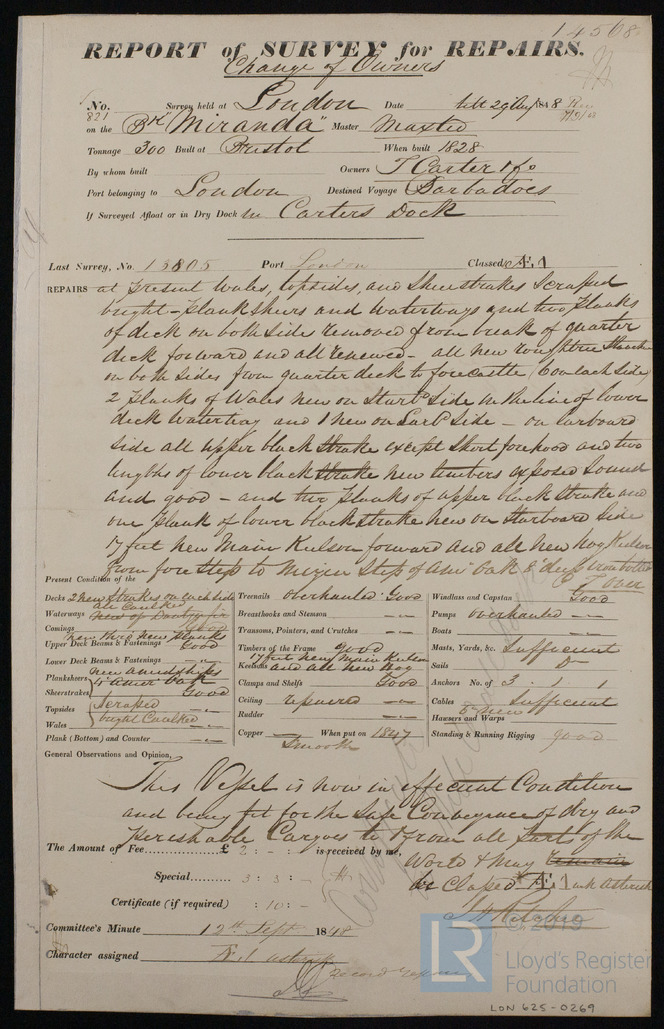 14508
REPORT of SURVEY for REPAIRS.
Change of Owners
No. 821 Survey held at London Date 29 Augt 1848
on the Bk "Miranda" Master Maxted
Tonnage 300 Built at Bristol When built 1828
By whom built Owners T Carter & Co
Port belonging to London Destined Voyage Barbadoes
If Surveyed Afloat or in Dry Dock in Carters Dock
Last Survey, No. 13805 Port London Classed Æ 1
REPAIRS at Present Wales, topsides, and Sheerstrakes Scraped
bright - Planksheers and Waterways and two Planks
of deck on both side removed from break of quarter
deck forward and all renewed - all new roughtree Stanchn
on both sides from quarter deck to forecastle (6 on each side)
2 Planks of Wales new on Starbd Side in the line of lower
deck Waterway and 1 new on Larbd Side - on larboard
side all upper black strake except short forehood and two
lengths of lower black strake new timbers exposed Sound
and good - and two Planks of upper black strake and
one Plank of lower black strake new on Starboard Side
17 feet new Main Keelson forward and all new hog Keelson
from fore Step to Mizen Step of Afn Oak &
Present Condition of the
Decks 2 new strakes on each side
all Caulked
Waterways
Comings Good
Upper Deck Beams & Fastenings Good
Lower Deck Beams & Fastenings
Planksheers new amidships
Sheerstrakes Good
Topsides Scraped
Wales bright Caulked
Plank (Bottom) and Counter
Treenails overhauled Good
Breasthooks and Stemson
Transoms, Pointers, and Crutches
Timbers of the Frame good
Keelsons 17 feet new Main Keelson and all new Hog
Clamps and Shelfs Good
Ceiling repaired
Rudder
Copper When put on 1847
Smooth
Windlass and Capstan Good
Pumps overhauled
Boats
Masts, Yards, &c. Sufficient
Sails
Anchors No. of 3 . 1 . 1
Cables Sufficient
Hawsers and Warps
Standing & Running Rigging good
General Observations and Opinion,
This Vessel is now in efficient Condition
and being fit for the safe Conveyance of dry and
Perishable Cargoes to & from all Parts of the
World & may remain
be Classed Æ 1 Asterisk
The Amount of Fee £ 2 : - : - is received by me,
Special 3 : 3 : -
Certificate (if required) : 10 : -
Committee's Minute 12th Sept 1848
Character assigned Æ 1 asterisk
record repairs
© 2019
LR
Lloyd's Register
Foundation
LON 625-0269